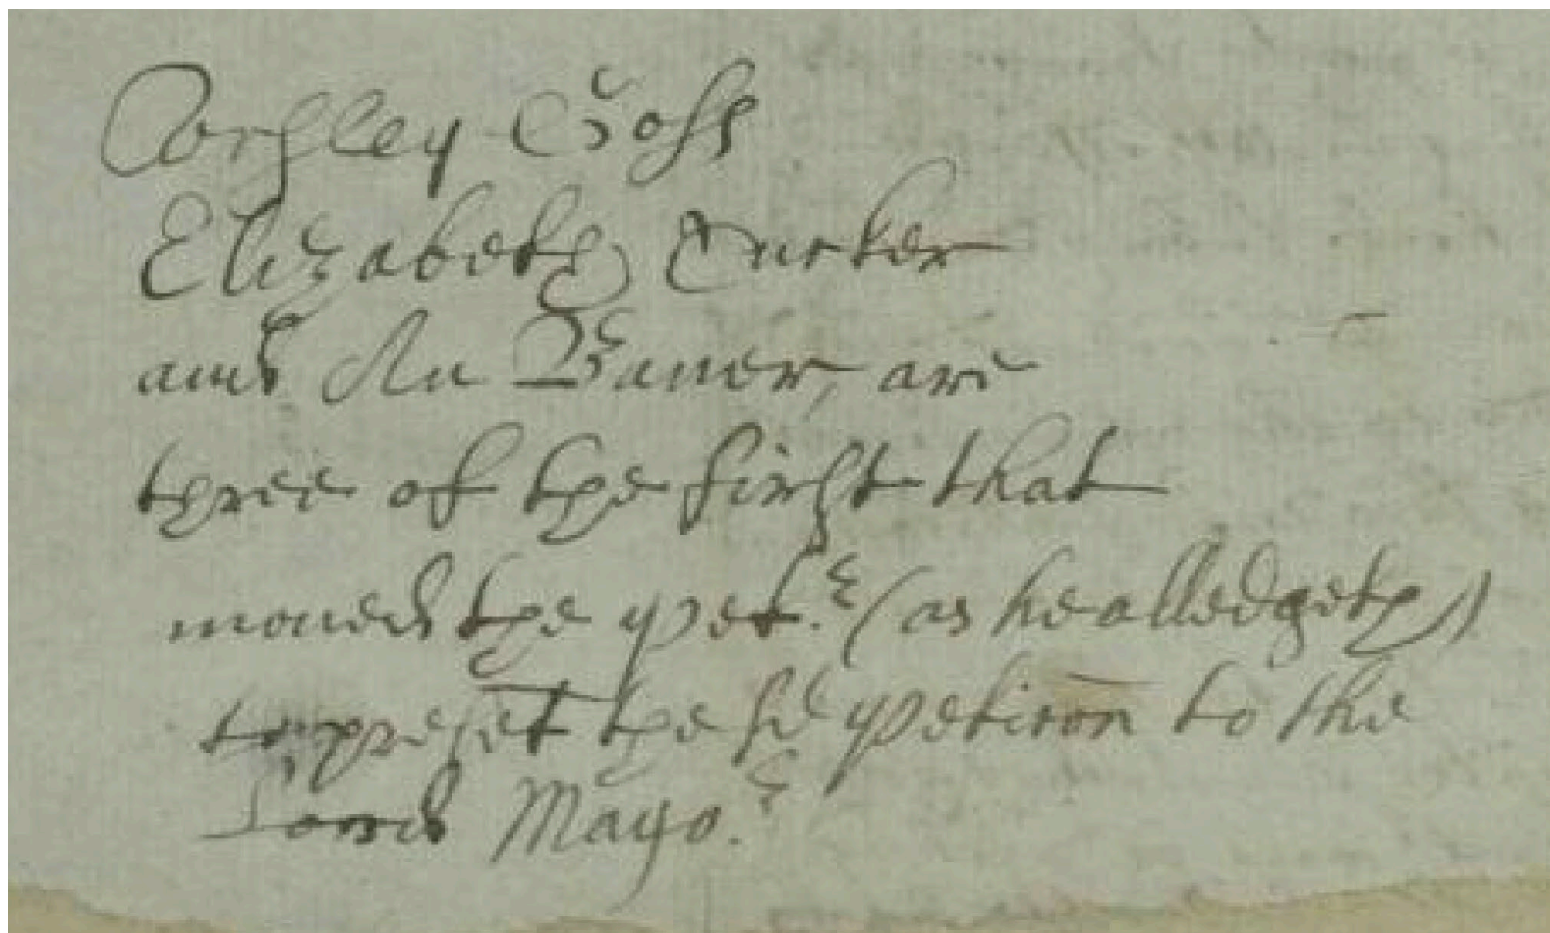 Corsley Goss
Elizabeth Turker
and An Baner, are
three of the first that
moued the pet.r (as he alledgeth)
to preset the sd petic̄on to the
Lord Mayo.r